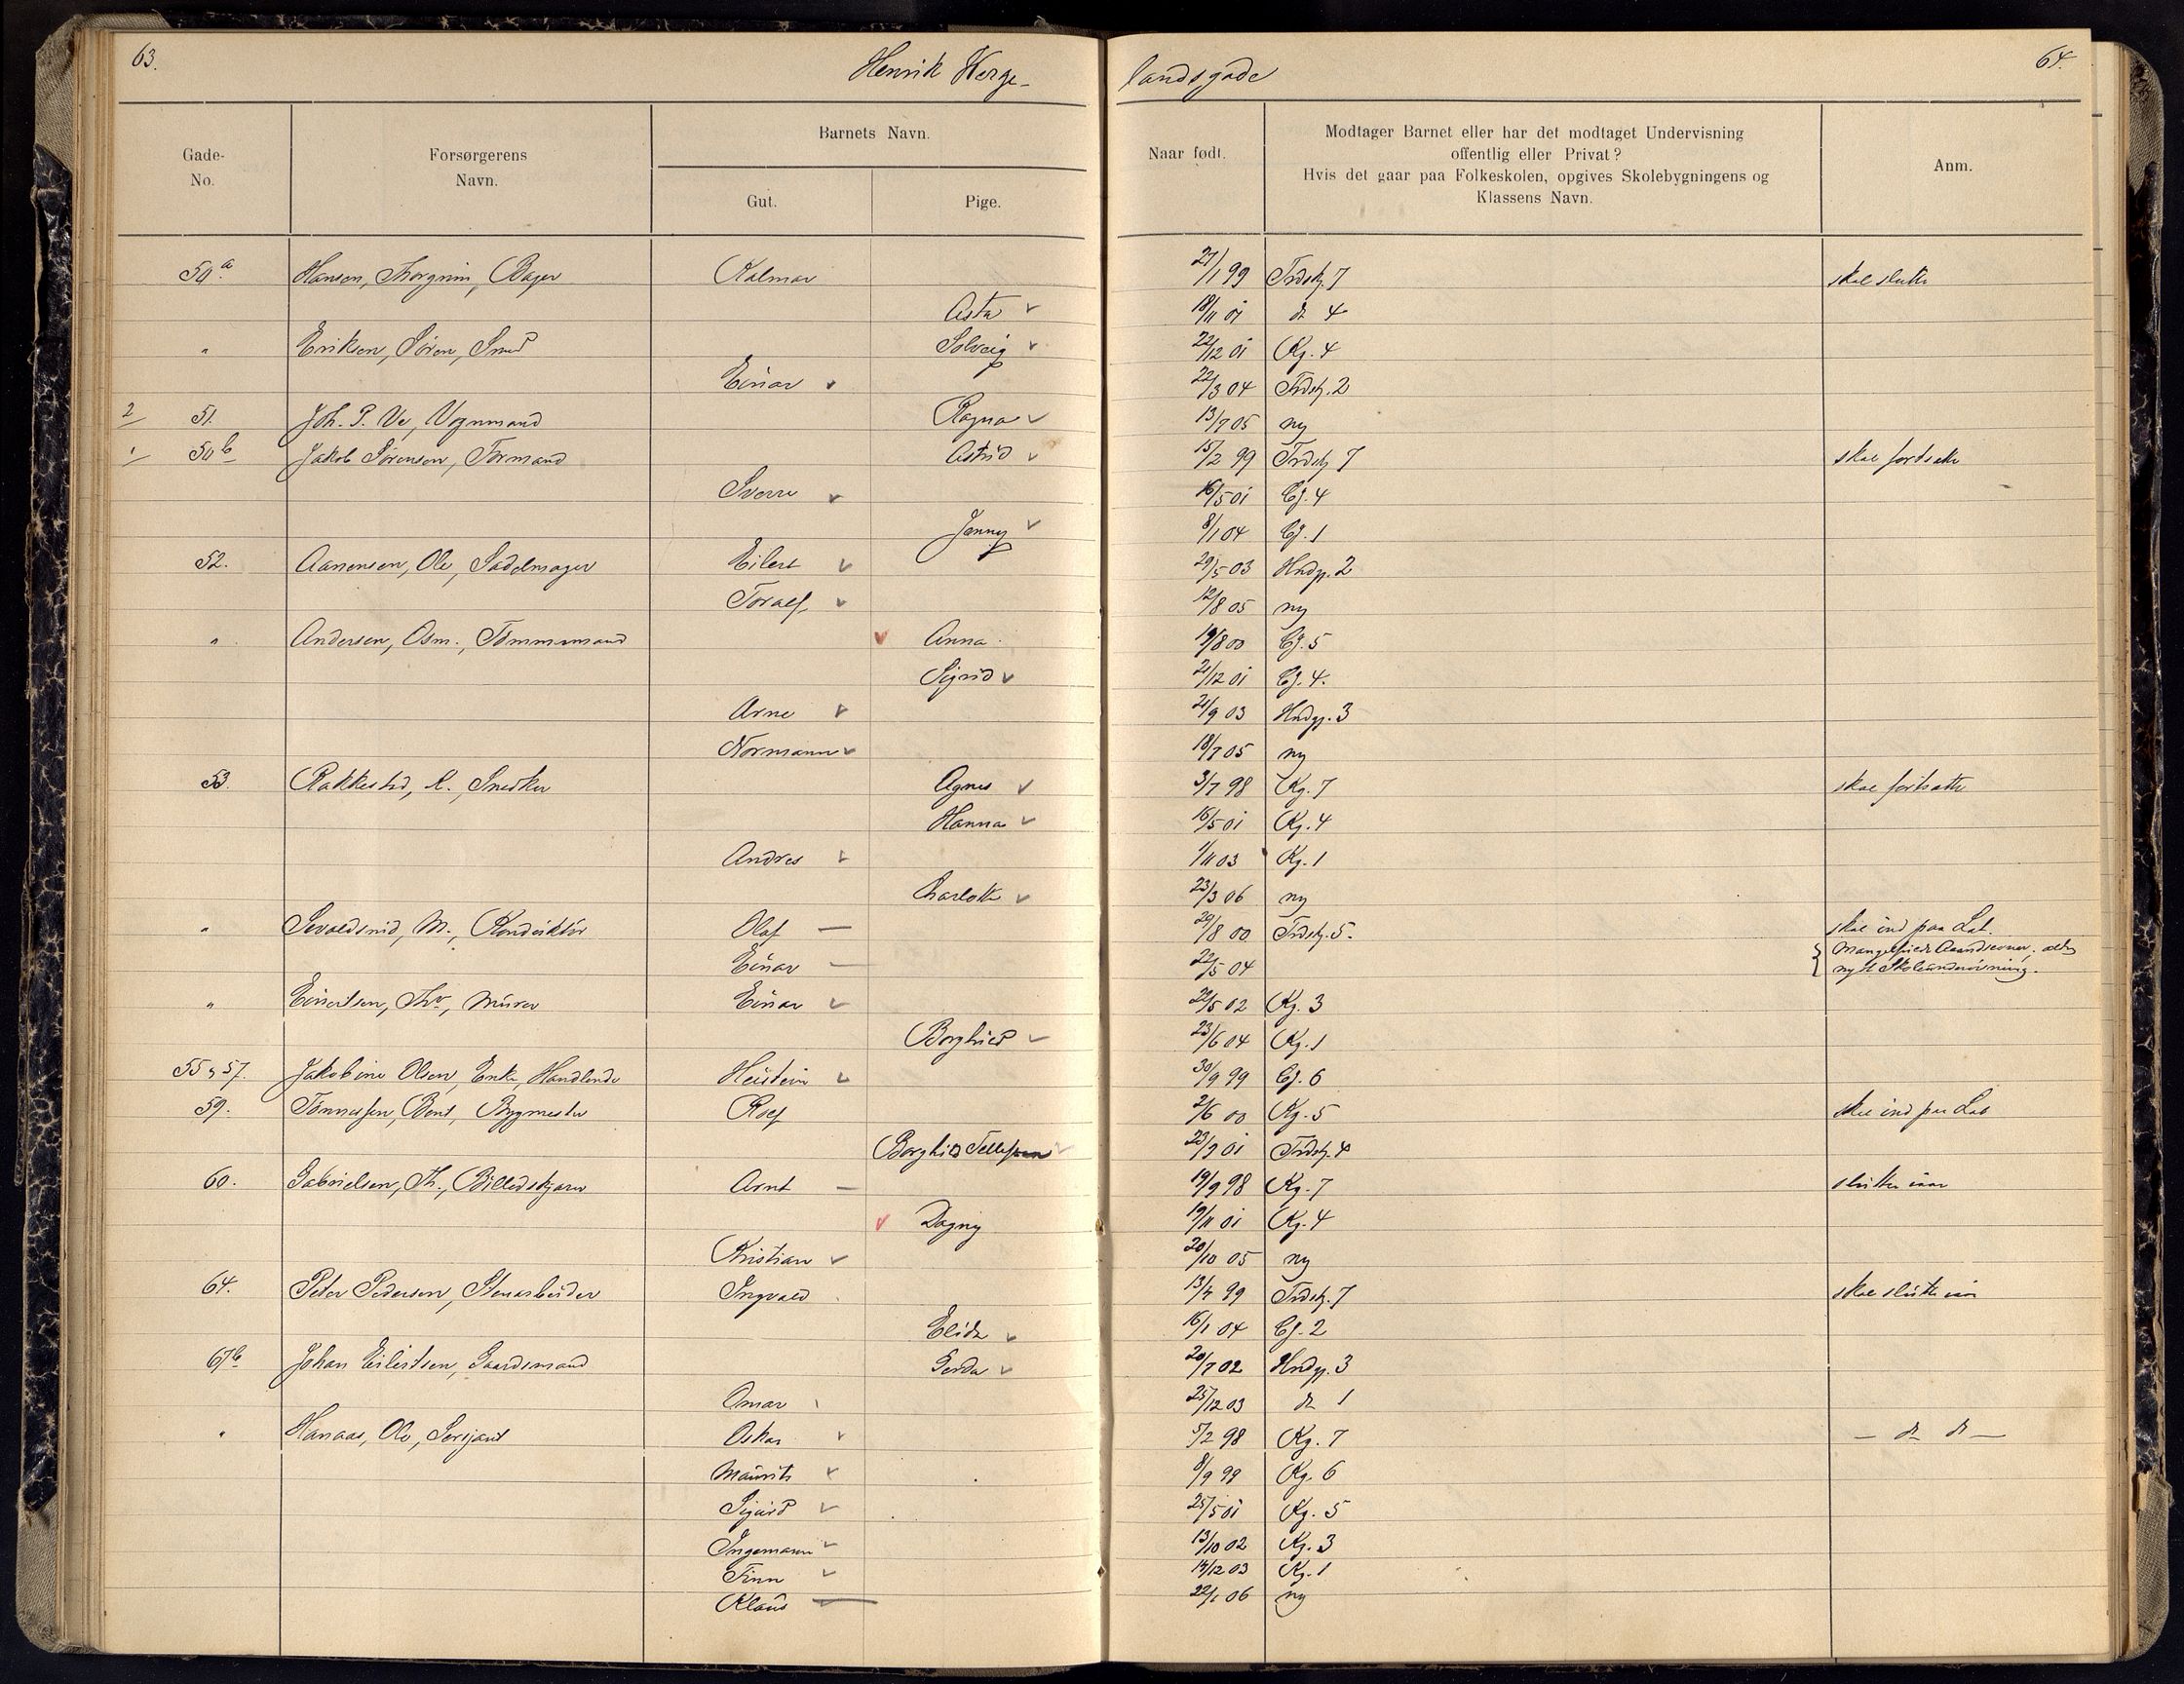 63.
Henrik Werge-
landsgade
64.
Gade-
No.
Forsørgerens
Navn.
Barnets Navn.
Gut.
Pige.
Naar født.
Modtager Barnet eller har det modtaget Undervisning
offentlig eller Privat?
Hvis det gaar paa Folkeskolen, opgives Skolebygningens og
Klassens Navn.
Anm.
50a Hansen, Thorgrim, Bager Kalmar 21/1 99 Trdskj. 7 skal slutte
Asta ✓ 18/11 01 do 4
" Eriksen, Søren, Smed Solveig ✓ 22/12 01 Kg. 4
Einar ✓ 22/3 04 Trdskj. 2
2/ 51. Joh. P. Ve, Vognmand Ragna ✓ 13/7 05 ny
1/ 50b Jakob Sørensen, Formand Astrid ✓ 15/2 99 Trdskj 7 skal fortsætte
Sverre ✓ 16/5 01 Bj. 4
Jenny ✓ 8/1 04 Bj. 1
52. Aanensen, Ole, Sadelmager Eilert ✓ 29/5 03 Hndg. 2
Toralf ✓ 12/8 05 ny
" Andersen, Osm., Tømmermand ✓ Anna. 19/8 00 Bj. 5
Sigrid ✓ 21/12 01 Bj. 4.
Arne ✓ 21/9 03 Hndg. 3
Normann ✓ 18/7 05 ny
53. Rakkestad, R., Snedker Agnes ✓ 3/7 98 Kg. 7 skal fortsætte
Hanna ✓ 16/5 01 Kg. 4
Andres ✓ 1/11 03 Kg. 1
Charlotte ✓ 23/3 06 ny
" M., Konduktør Olaf — 29/8 00 Trdskj. 5. skal ind paa Lat.
Einar — 22/5 04 { Mangelfulde Aandsevner.
nydt Skoleundervisning.
" Einertsen, Thv., Murer Einar ✓ 29/5 02 Kg. 3
Borghild ✓ 23/6 04 Kg. 1
55 & 57. Jakobine Olsen, Enke, Handlende Heistein ✓ 30/9 99 Bj. 6
59. Tønnessen, Bent, Bygmester Rolf 2/6 00 Kg. 5 skal ind paa Lat
Borghild Tellefsen ✓ 23/9 01 Trdskj. 4
60. Gabrielsen, Th., Billedskjærer Arnt — 19/9 98 Kg. 7 slutter iaar
✓ Dagny 19/11 01 Kg. 4
Kristian ✓ 20/10 05 ny
64. Peter Pedersen, Stenarbeider Ingvald 13/4 99 Trdskj. 7 skal slutte iaar
Elida ✓ 16/1 04 Bj. 2
67b Johan Eilertsen, Gaardsmand Gerda ✓ 20/7 02 Hndg. 3
Omar 25/12 03 do 1
" Hanaas, Ole, Sersjant Oskar ✓ 5/2 98 Kg. 7 — do do —
Maurits ✓ 8/9 99 Kg. 6
Sigurd ✓ 25/5 01 Kg. 5
Ingemann ✓ 13/10 02 Kg. 3
Finn ✓ 14/12 03 Kg. 1
Klaus — 22/1 06 ny